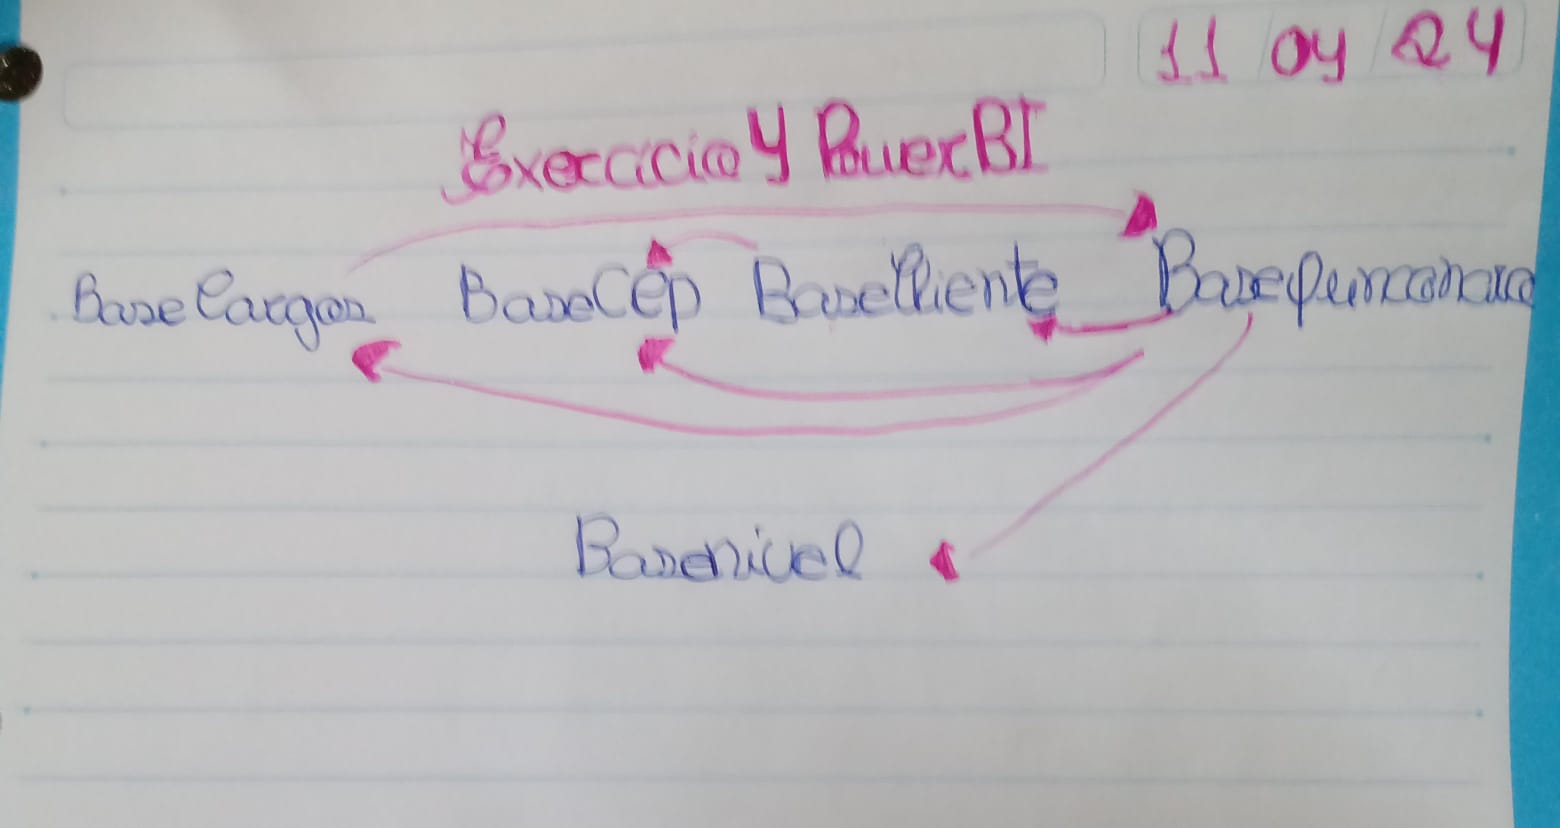 11 04 24
Exercício 4 Power BI
BaseCargos BaseCep BaseCliente Basefuncionario
Basenivel